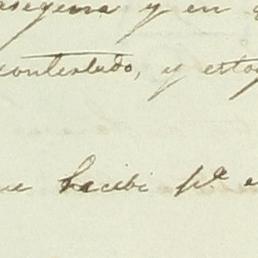 asegura y en
contestado, y estoy
ue recibi pª e